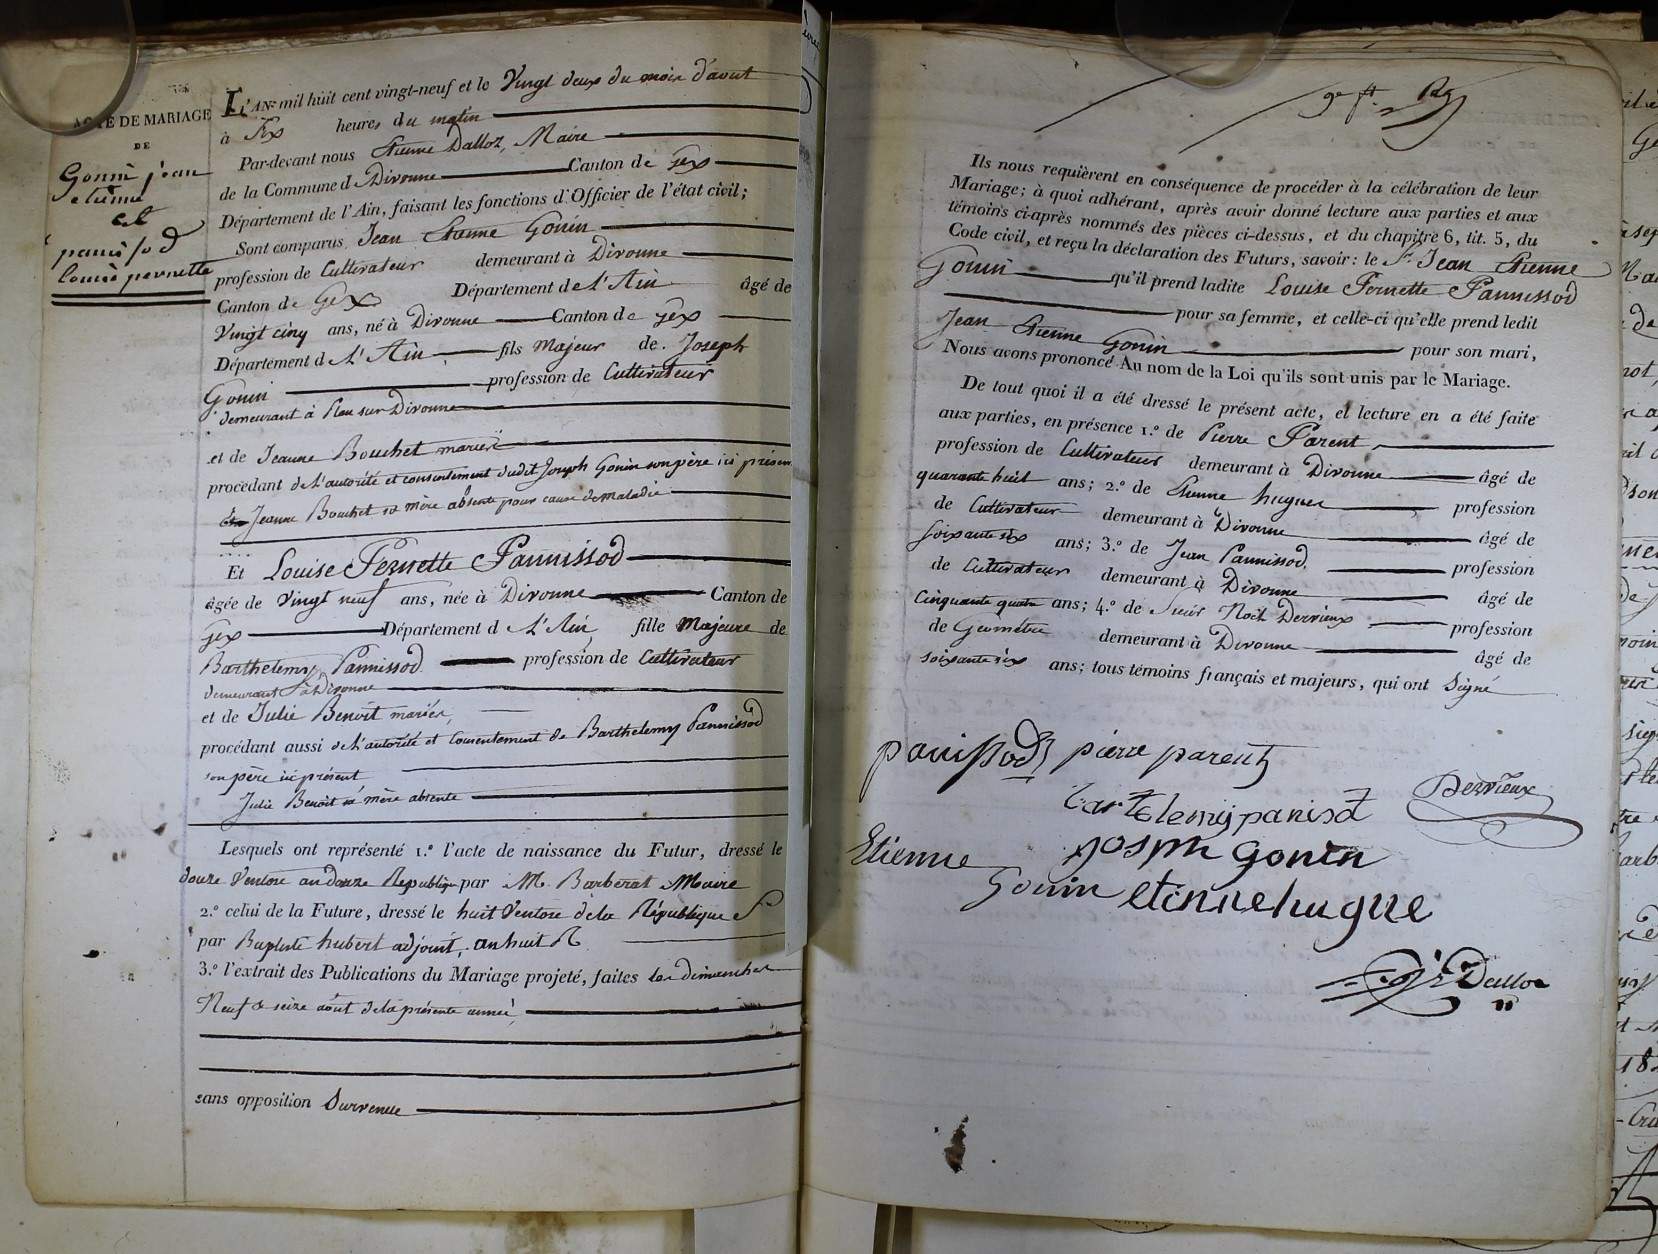 ACTE DE MARIAGE
DE
Gonin jean
etienne
et
panissod
louise pernette
L'AN mil huit cent vingt-neuf et le Vingt deux du mois d'aout
à Six heures du matin
Par-devant nous Etienne Dalloz, Maire
de la Commune d Divonne Canton de Gex
Département de l'Ain, faisant les fonctions d'Officier de l'état civil;
Sont comparus Jean Etienne Gonin
profession de Cultivateur demeurant à Divonne
Canton de Gex Département de L'Ain âgé de
Vingt cinq ans, né à Divonne Canton de Gex
Département d L'Ain fils Majeur de Joseph
Gonin profession de Cultivateur
demeurant à Plan sur Divonne
et de Jeanne Bouchet mariés
procédant de L'autorité et consentement dudit Joseph Gonin son père ici présen
Jeanne Bouchet sa mère absente pour cause de maladie
Et Louise Pernette Pannissod
âgée de Vingt neuf ans, née à Divonne Canton de
Gex Département d L'Ain fille Majeure de
Barthelemy Pannissod profession de Cultivateur
demeurant à Divonne
et de Julie Benoit mariés,
procédant aussi de L'autorité et Consentement de Barthelemy Pannissod
son père ici présent
Julie Benoit sa mère absente
Lesquels ont représenté 1.º l'acte de naissance du Futur, dressé le
douze Ventose an douze Republiq par M. Barberat Maire
2.º celui de la Future, dressé le huit Ventose de la République
par Baptiste hubert adjoint, an huit R
3.º l'extrait des Publications du Mariage projeté, faites les dimanches
Neuf & seize août de la présente année,
sans opposition Survenue
Ils nous requièrent en conséquence de procéder à la célébration de leur
Mariage; à quoi adhérant, après avoir donné lecture aux parties et aux
témoins ci-après nommés des pièces ci-dessus, et du chapitre 6, tit. 5, du
Code civil, et reçu la déclaration des Futurs, savoir: le Sr. Jean Etienne
Gonin qu'il prend ladite Louise Pernette Pannissod
pour sa femme, et celle-ci qu'elle prend ledit
Jean Etienne Gonin pour son mari,
Nous avons prononcé Au nom de la Loi qu'ils sont unis par le Mariage.
De tout quoi il a été dressé le présent acte, et lecture en a été faite
aux parties, en présence 1.º de Pierre Parent
profession de Cultivateur demeurant à Divonne âgé de
quarante huit ans; 2.º de Etienne hugues profession
de Cultivateur demeurant à Divonne âgé de
soixante six ans; 3.º de Jean Pannissod profession
de Cultivateur demeurant à Divonne âgé de
Cinquante quatre ans; 4.º de Sieur Noël Derrieux profession
de Géomètre demeurant à Divonne âgé de
soixante six ans; tous témoins français et majeurs, qui ont Signé
panissod pierre parent
Derrieux
bartelemy panisod
Etienne josph gonin
Gonin etinne hugue
Dalloz